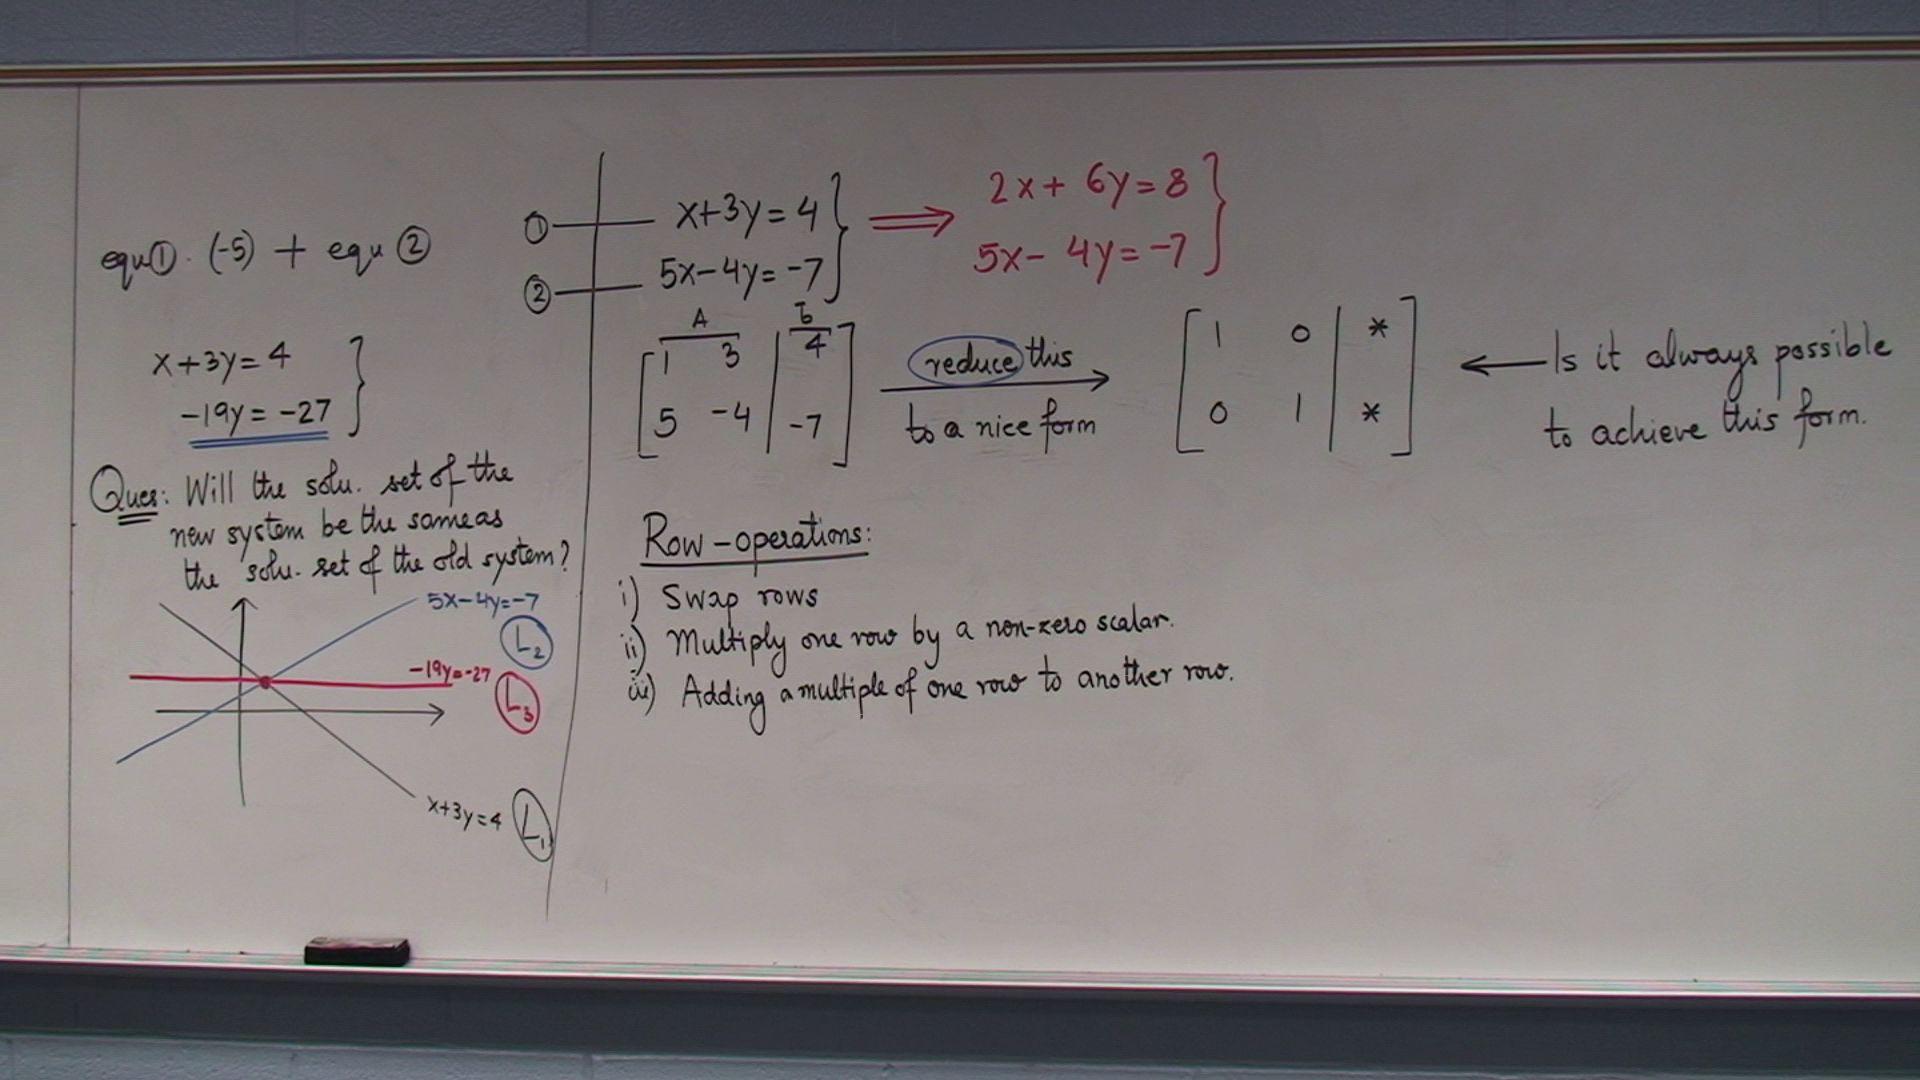 equ①. (-5) + equ ②
x+3y=4
-19y=-27
Ques: Will the solu. set of the
new system be the same as
the solu. set of the old system?
5x-4y=-7
L₂
-19y=-27
L₃
x+3y=4
L₁
① x+3y=4 ⟹ 2x+6y=8
② 5x-4y=-7 5x-4y=-7
A b
1 3 | 4
5 -4 | -7
reduce this
to a nice form
1 0 | *
0 1 | *
← Is it always possible
to achieve this form.
Row-operations:
i) Swap rows
ii) Multiply one row by a non-zero scalar.
iii) Adding a multiple of one row to another row.